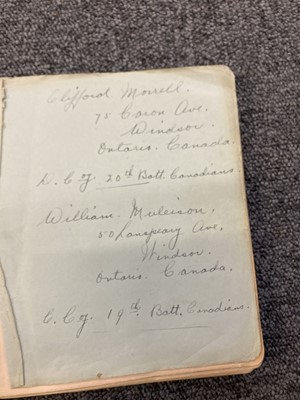 Clifford Morrell.
75 Caron Ave.
Windsor.
Ontario. Canada.
D. Cy. 20th Batt. Canadians.
William
50 Lanspeary Ave,
Windsor.
Ontario. Canada.
C. Cy. 19th. Batt. Canadians.